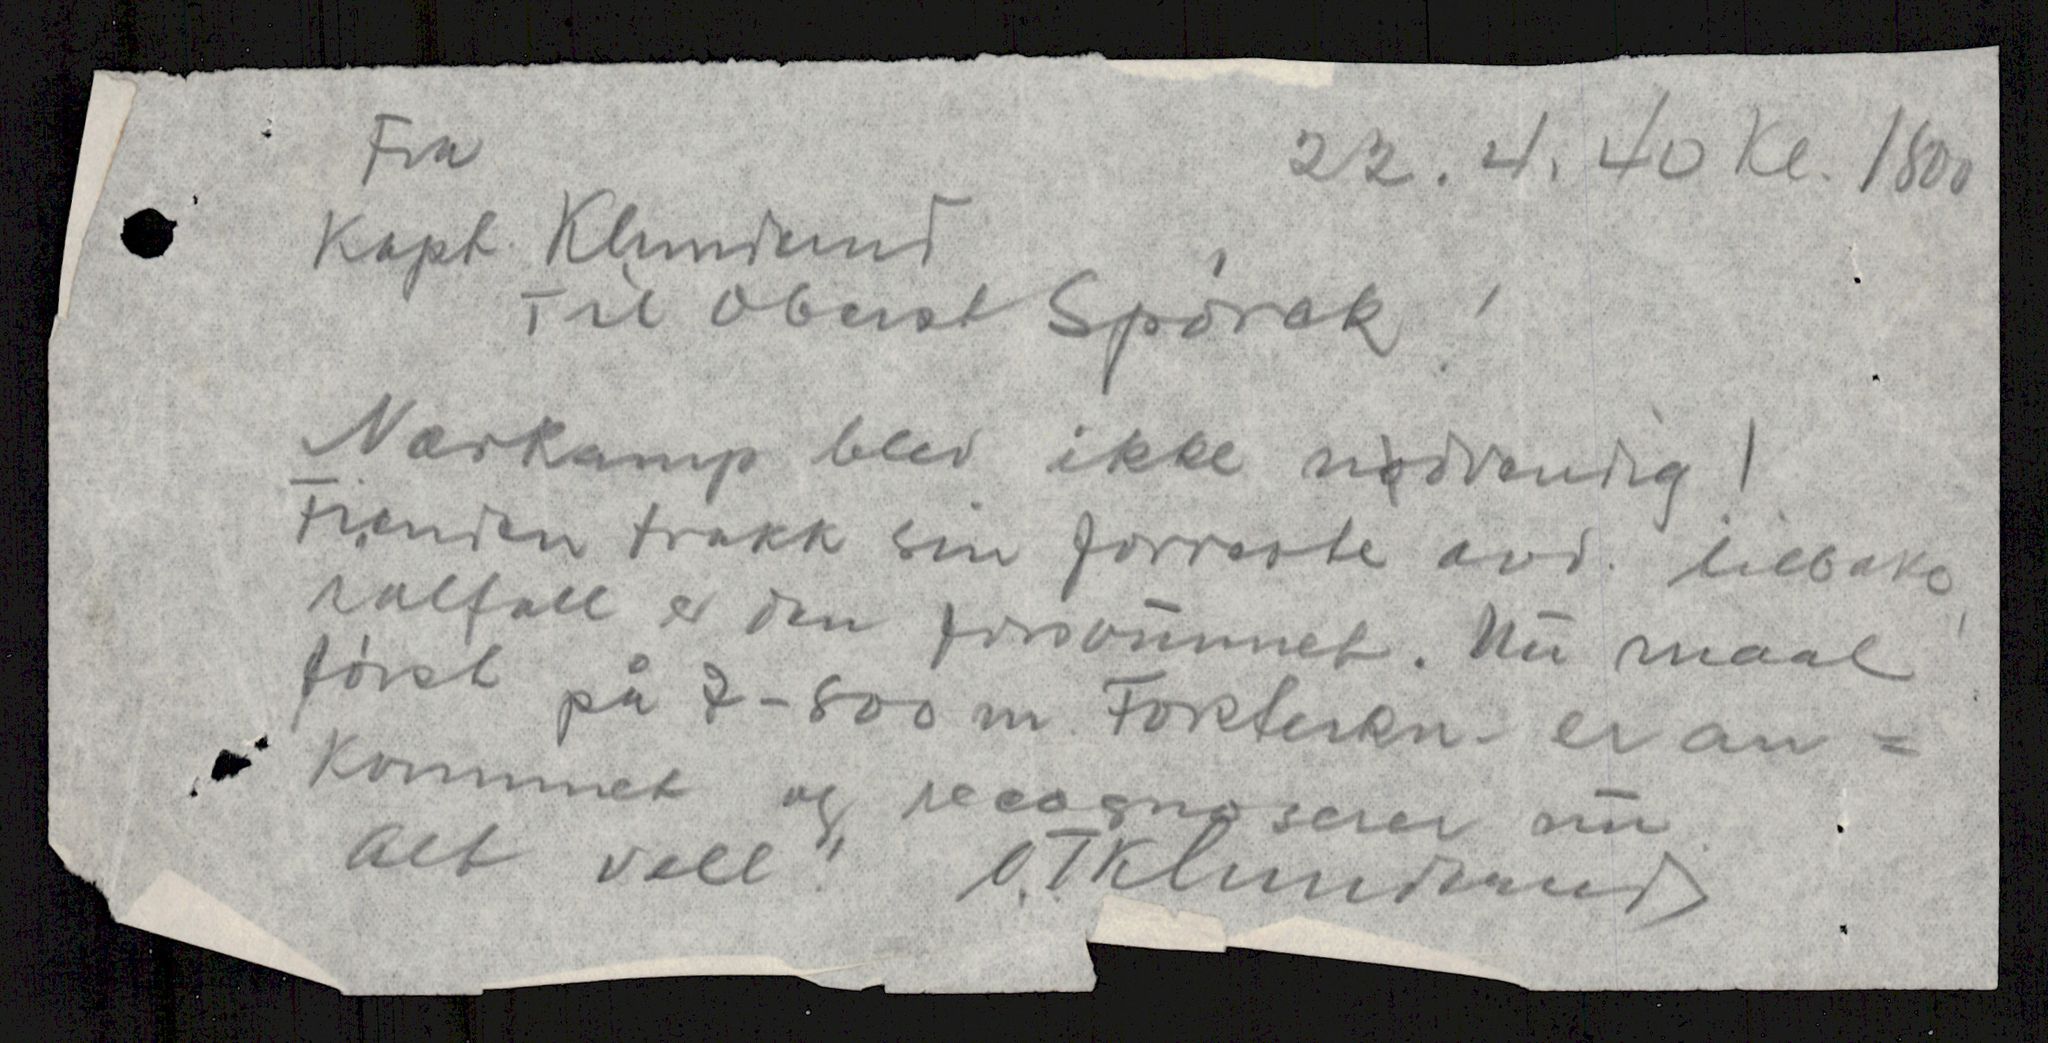 Fra
22.4.40 Kl. 1800
Kapt. Klunderud
Til Oberst Spörck!
Nærkamp blev ikke nødvendig!
Fienden trakk sin forreste avd. tilbake,
ialfall er den forsvunnet. Nu maal
först på 7-800 m. Forsterkn. er an=
kommet og recognoserer nu.
Alt vell! O.T. Klunderud